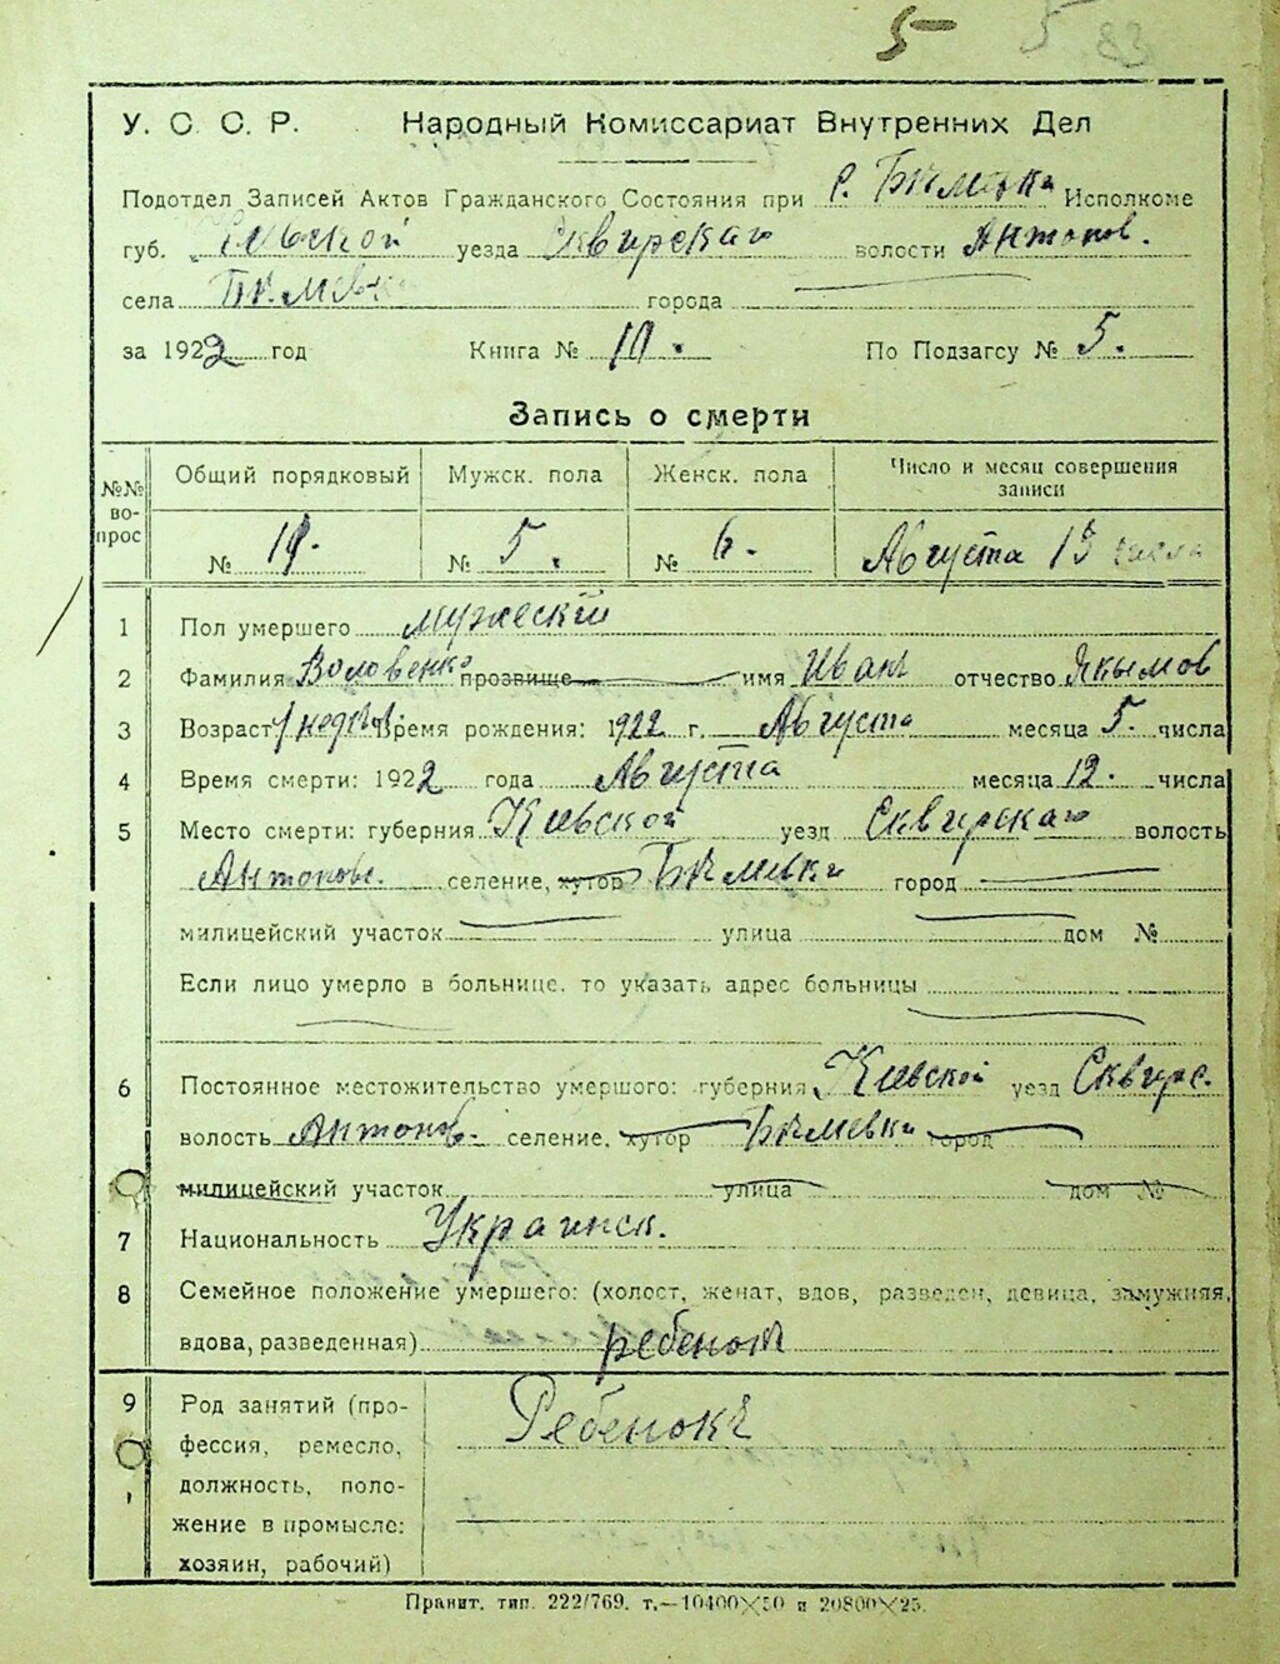 5 5 83
У. С. С. Р. Народный Комиссариат Внутренних Дел
Подотдел Записей Актов Гражданского Состояния при с. Исполкоме
губ. уезда Сквирскаго волости Антонов.
села города
за 1922 год Книга № 10. По Подзагсу № 5.
Запись о смерти
№№ вопрос
Общий порядковый Мужск. пола Женск. пола Число и месяц совершения
записи
№ № 5. № 6. Августа числа
1 Пол умершего мужеский
2 Фамилия Воловенко прозвище имя Иван отчество Якымов
3 Возраст Время рождения: 1922 г. Августа месяца 5. числа
4 Время смерти: 1922 года Августа месяца 12. числа
5 Место смерти: губерния Киевской уезд Сквирскаго волость
Антонов. селение, хутор Бѣлиевки город
милицейский участок улица дом №
Если лицо умерло в больнице, то указать адрес больницы
6 Постоянное местожительство умершого: губерния Киевской уезд Сквирс.
волость Антонов. селение, хутор Бѣлиевки город
милицейский участок улица дом №
7 Национальность Украинск.
8 Семейное положение умершего: (холост, женат, вдов, разведен, девица, замужняя,
вдова, разведенная) ребенок
9 Род занятий (про- Ребенокъ
фессия, ремесло,
должность, поло-
жение в промысле:
хозяин, рабочий)
Правит. тип. 222/769. т.—10400×50 и 20800×25.